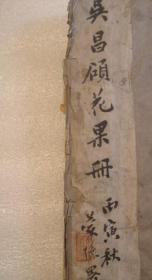 吳昌碩花果冊
丙寅秋